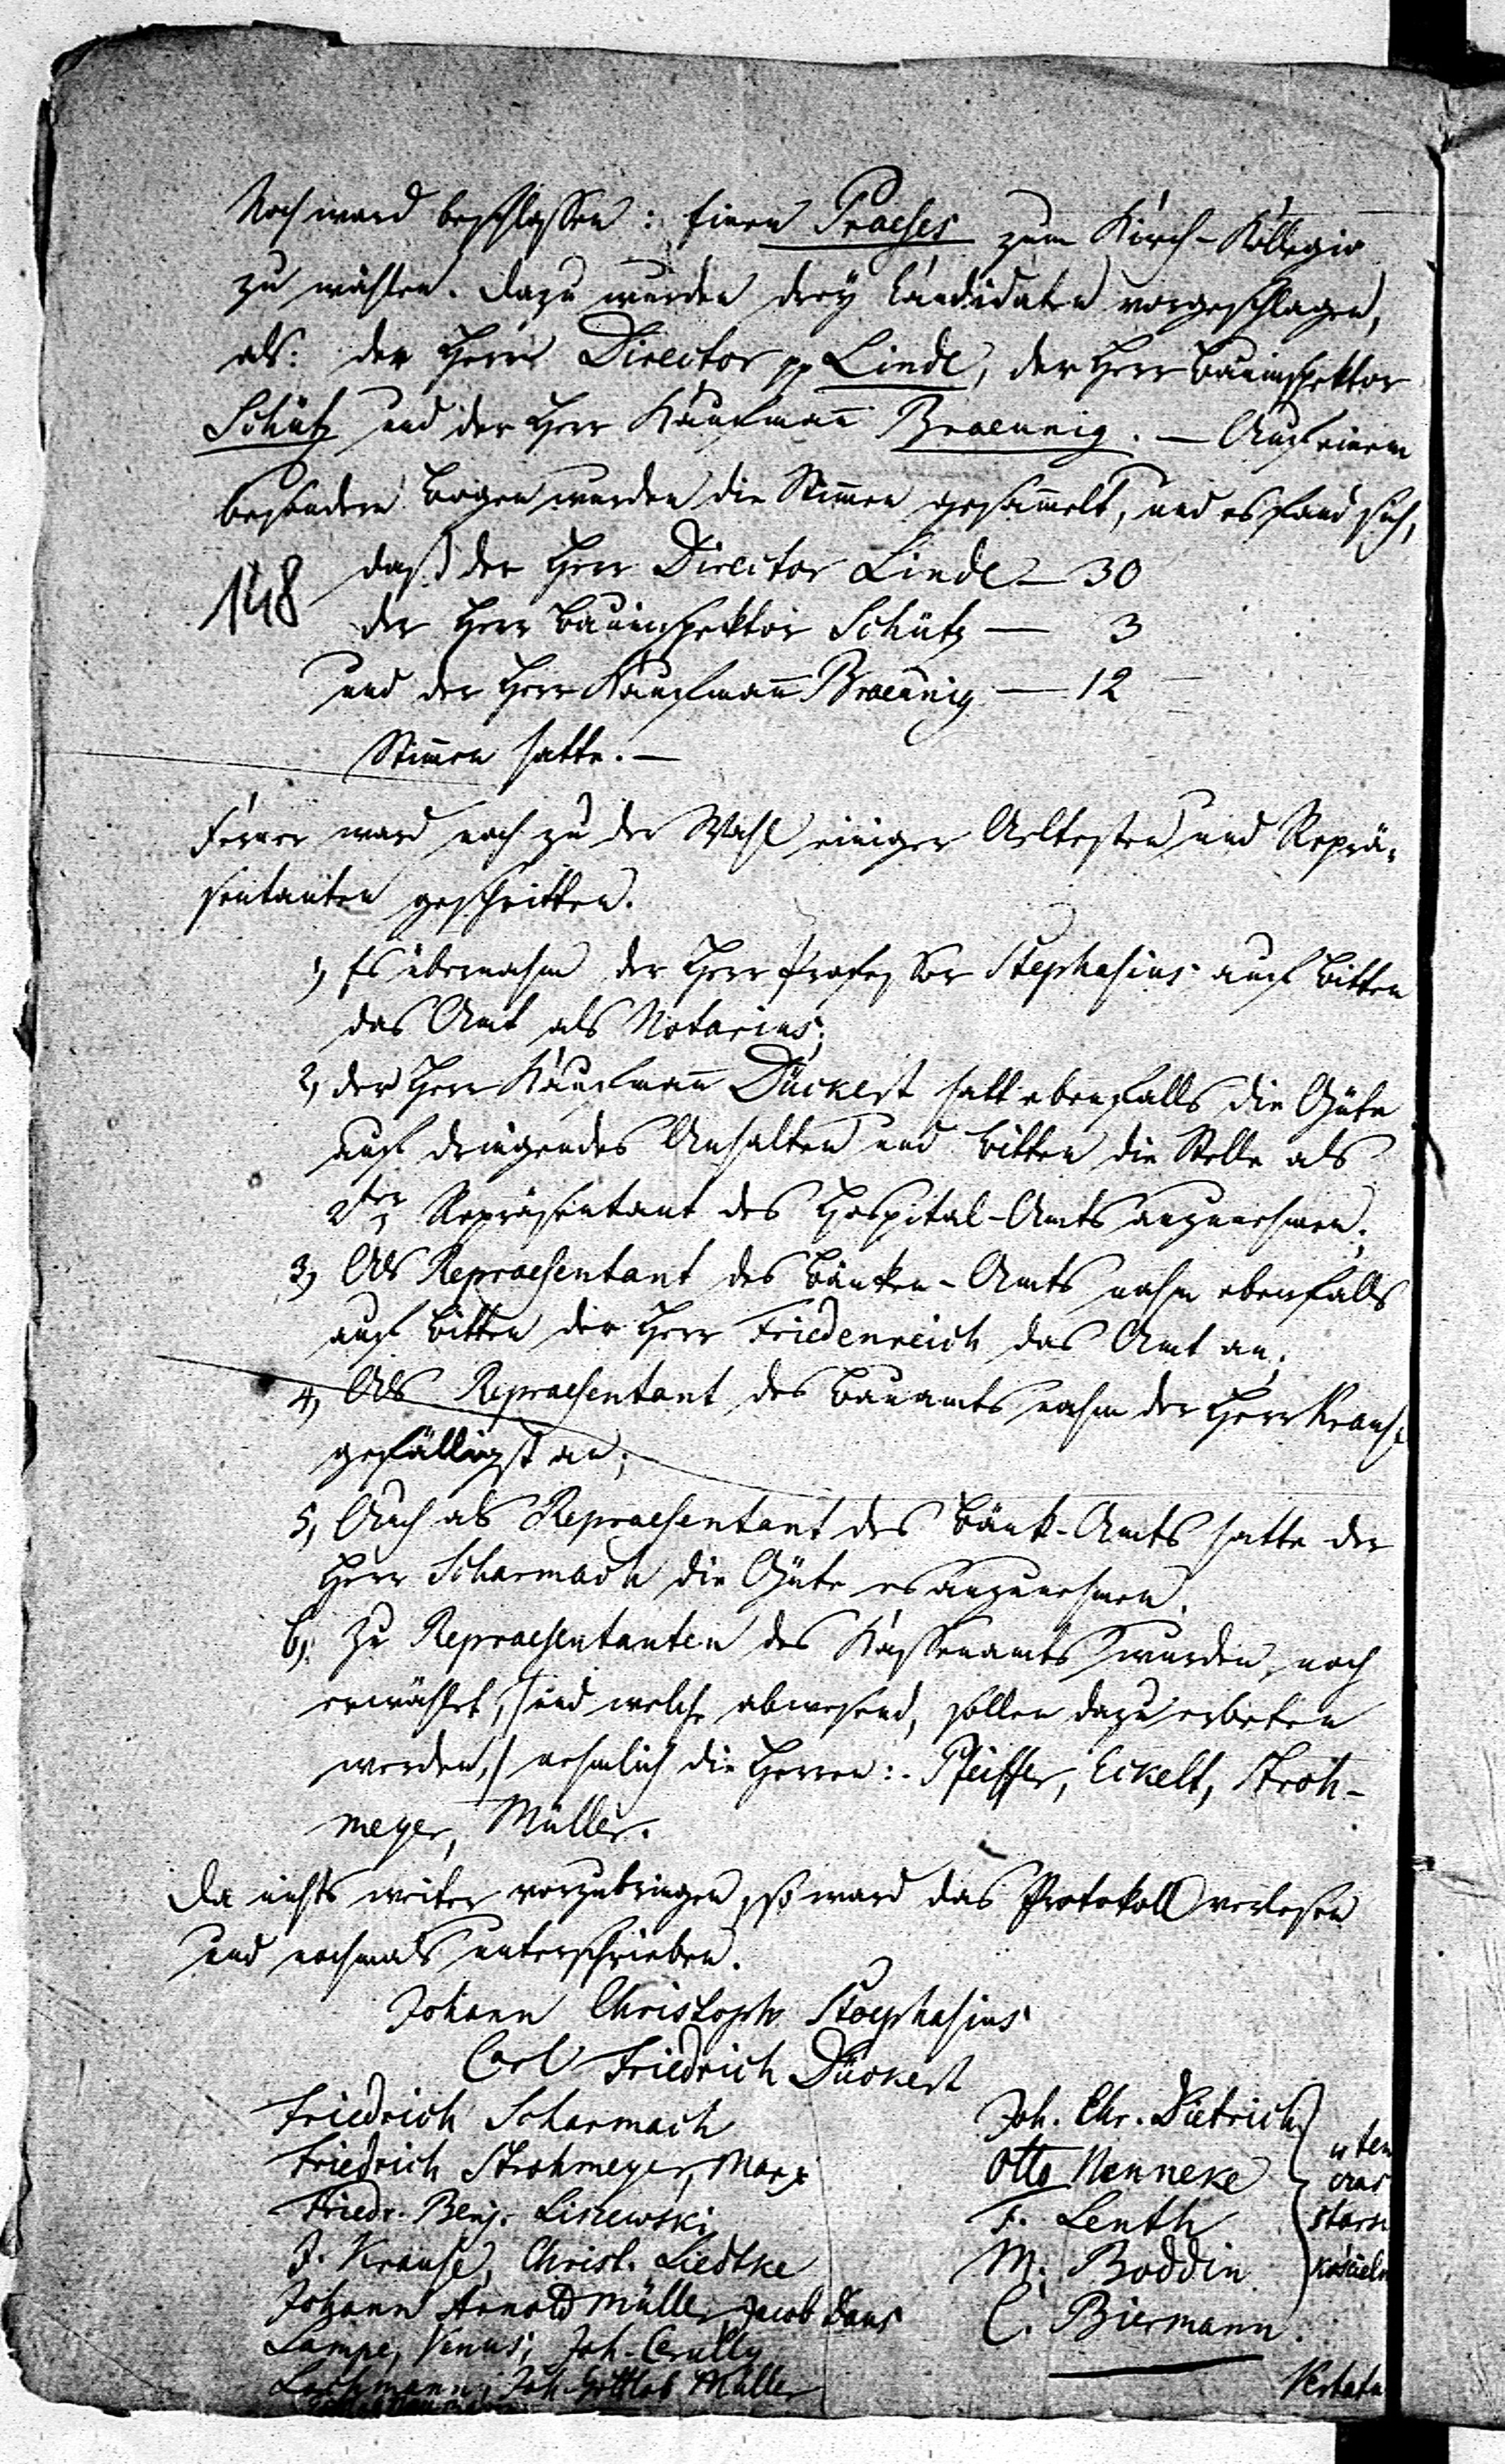 Noch ward beschlossen: Einen Praeses zum Kirch-Kollegio
zu wählen. Dazu wurden drey Candidaten vorgeschlagen,
als: der Herr Director pp Linde, der Herr Bauinspektor
Schütz und der Herr Kaufmañ Braeunig. — Auf einem
besondern Bogen wurden die Stim̃en gesam̃elt, und es fand sich,
148
daß der Herr Director Linde — 30
der Herr Bauinspektor Schütz — 3
und der Herr Kaufmañ Braeunig — 12
Stim̃en hatte. —
Ferner ward noch zu der Wahl einiger Aeltesten und Reprä-
sentanten geschritten.
1, Es übernahm der Herr Professor Stephasius auf Bitten
das Amt als Notarius;
2, der Herr Kaufmañ Dückert hatt ebenfalls die Güte
auf dringendes Anhalten und Bitten die Stelle als
2ter Repräsentant des Hospital-Amts anzunehmen;
3, Als Repraesentant des Bänken-Amts nahm ebenfalls
auf Bitten der Herr Friedenreich das Amt an;
4, Als Repraesentant des Bauamts nahm der Herr Krause
gefälligst an;
5, Auch als Repraesentant des Bänk-Amts hatte der
Herr Scharmach die Güte es anzunehmen.
6, Zu Repraesentanten des Kassenamts wurden noch
erwählet, /und welche abwesend, sollen dazu erbeten
werden,/ nehmlich die Herren: Pfeiffer, Eckelt, Stroh-
meyer, Müller.
Da nichts weiter vorzubringen, so ward das Protokoll verlesen
und nochmals unterschrieben.
Johann Christoph Stoephasius
Carl Friedrich Dückert
Friedrich Scharmach
Friedrich Strohmeyer, Marx
Friedr. Benj. Liszewski
J. Krause, Christ. Liedtke
Johann Arnold Müller, Jacob Dans
Lampe, Venus; Joh. Cerully
Lachmann; Joh. Gottlob Müller
Joh. Chr. Dietrich
Otto Nenneke
F. Lenth
M. Boddin
C. Biermann.